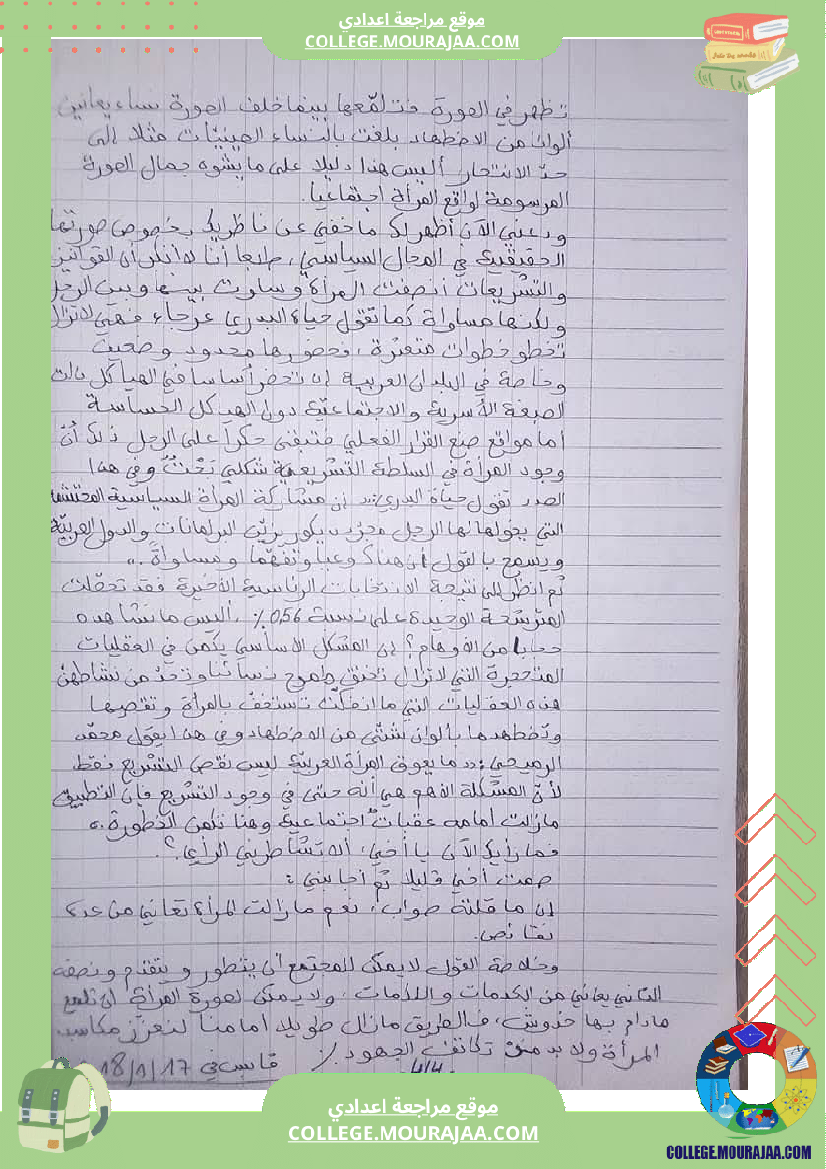 موقع مراجعة اعدادي
COLLEGE.MOURAJAA.COM
تظهر في الصورة فتلمّعها بينما خلف الصورة نساء يعانين
ألوان من الاضطهاد بلغت بالنساء الصينيّات مثلا إلى
حدّ الانتحار أليس هذا دليلا على ما يشوه جمال الصورة
المرسومة لواقع المرأة اجتماعيا.
ودعيني الآن أظهر لك ما خفي عن ناظريك بخصوص صورتها
الحقيقية في المجال السياسي، طبعا أنا لا أنكر أن القوانين
والتشريعات أنصفت المرأة وساوت بينها وبين الرجل
ولكنها مساواة كما تقول حياة البدري عرجاء فهي لا تزال
تخطو خطوات متعثرة، فحضورها محدود وضعيف
وخاصة في البلدان العربية إن تحضر أساسا في الهياكل ذات
الصبغة الأسرية والاجتماعيّة دون الهياكل الحساسة
أما مواقع صنع القرار الفعلي فتبقى حكرا على الرجل ذلك أنّ
وجود المرأة في السلطة التشريعية شكلي بَحْتٌ وفي هذا
الصدد تقول حياة البدري: "إن مشاركة المرأة السياسية المحتشمة
التي يخولها لها الرجل مجرّد ديكور يزيّن البرلمانات والدول العربيّة
ويسمح بالقول أن هناك وعيا وتفهّما ومساواةً".
ثم انظر إلى نتيجة الانتخابات الرئاسية الأخيرة فقد تحصّلت
المترشحة الوحيدة على نسبة 056٪، أليس ما نشاهده
من الأوهام؟ إن المشكل الأساسي يكمن في العقليات
المتحجرة التي لا تزال تخنق طموح نسائنا وتحدّ من نشاطهنّ
هذه العقليات التي ما انفكّت تستخفّ بالمرأة وتقصيها
وتضطهدها بألوان شتّى من الاضطهاد وفي هذا يقول محمّد
الرميحي: "ما يعوق المرأة العربيّة ليس نقص التشريع فقط
لأنّ المشكلة الأهم هي أنه حتى في وجود التشريع فإن التطبيق
مازالت أمامه عقباتٌ اجتماعية وهنا تكمن الخطورة".
فما رأيك الآن يا أخي، ألا تشاطرني الرأي؟.
صمت أخي قليلا ثم أجابني:
إن ما قلته صواب، نعم مازالت المرأة تعاني من عدة
نقائص.
وخلاصة القول لا يمكن للمجتمع أن يتطور ويتقدم ونصفه
الثاني يعاني من الكدمات واللكمات، ولا يمكن لصورة المرأة أن تلمع
مادام بها خدوش، فالطريق مازال طويلا أمامنا لنعزّز مكاسب
المرأة ولا بد من تكاتف الجهود ./.
4/4. قابس في 18/1/17
موقع مراجعة اعدادي
COLLEGE.MOURAJAA.COM
COLLEGE.MOURAJAA.COM